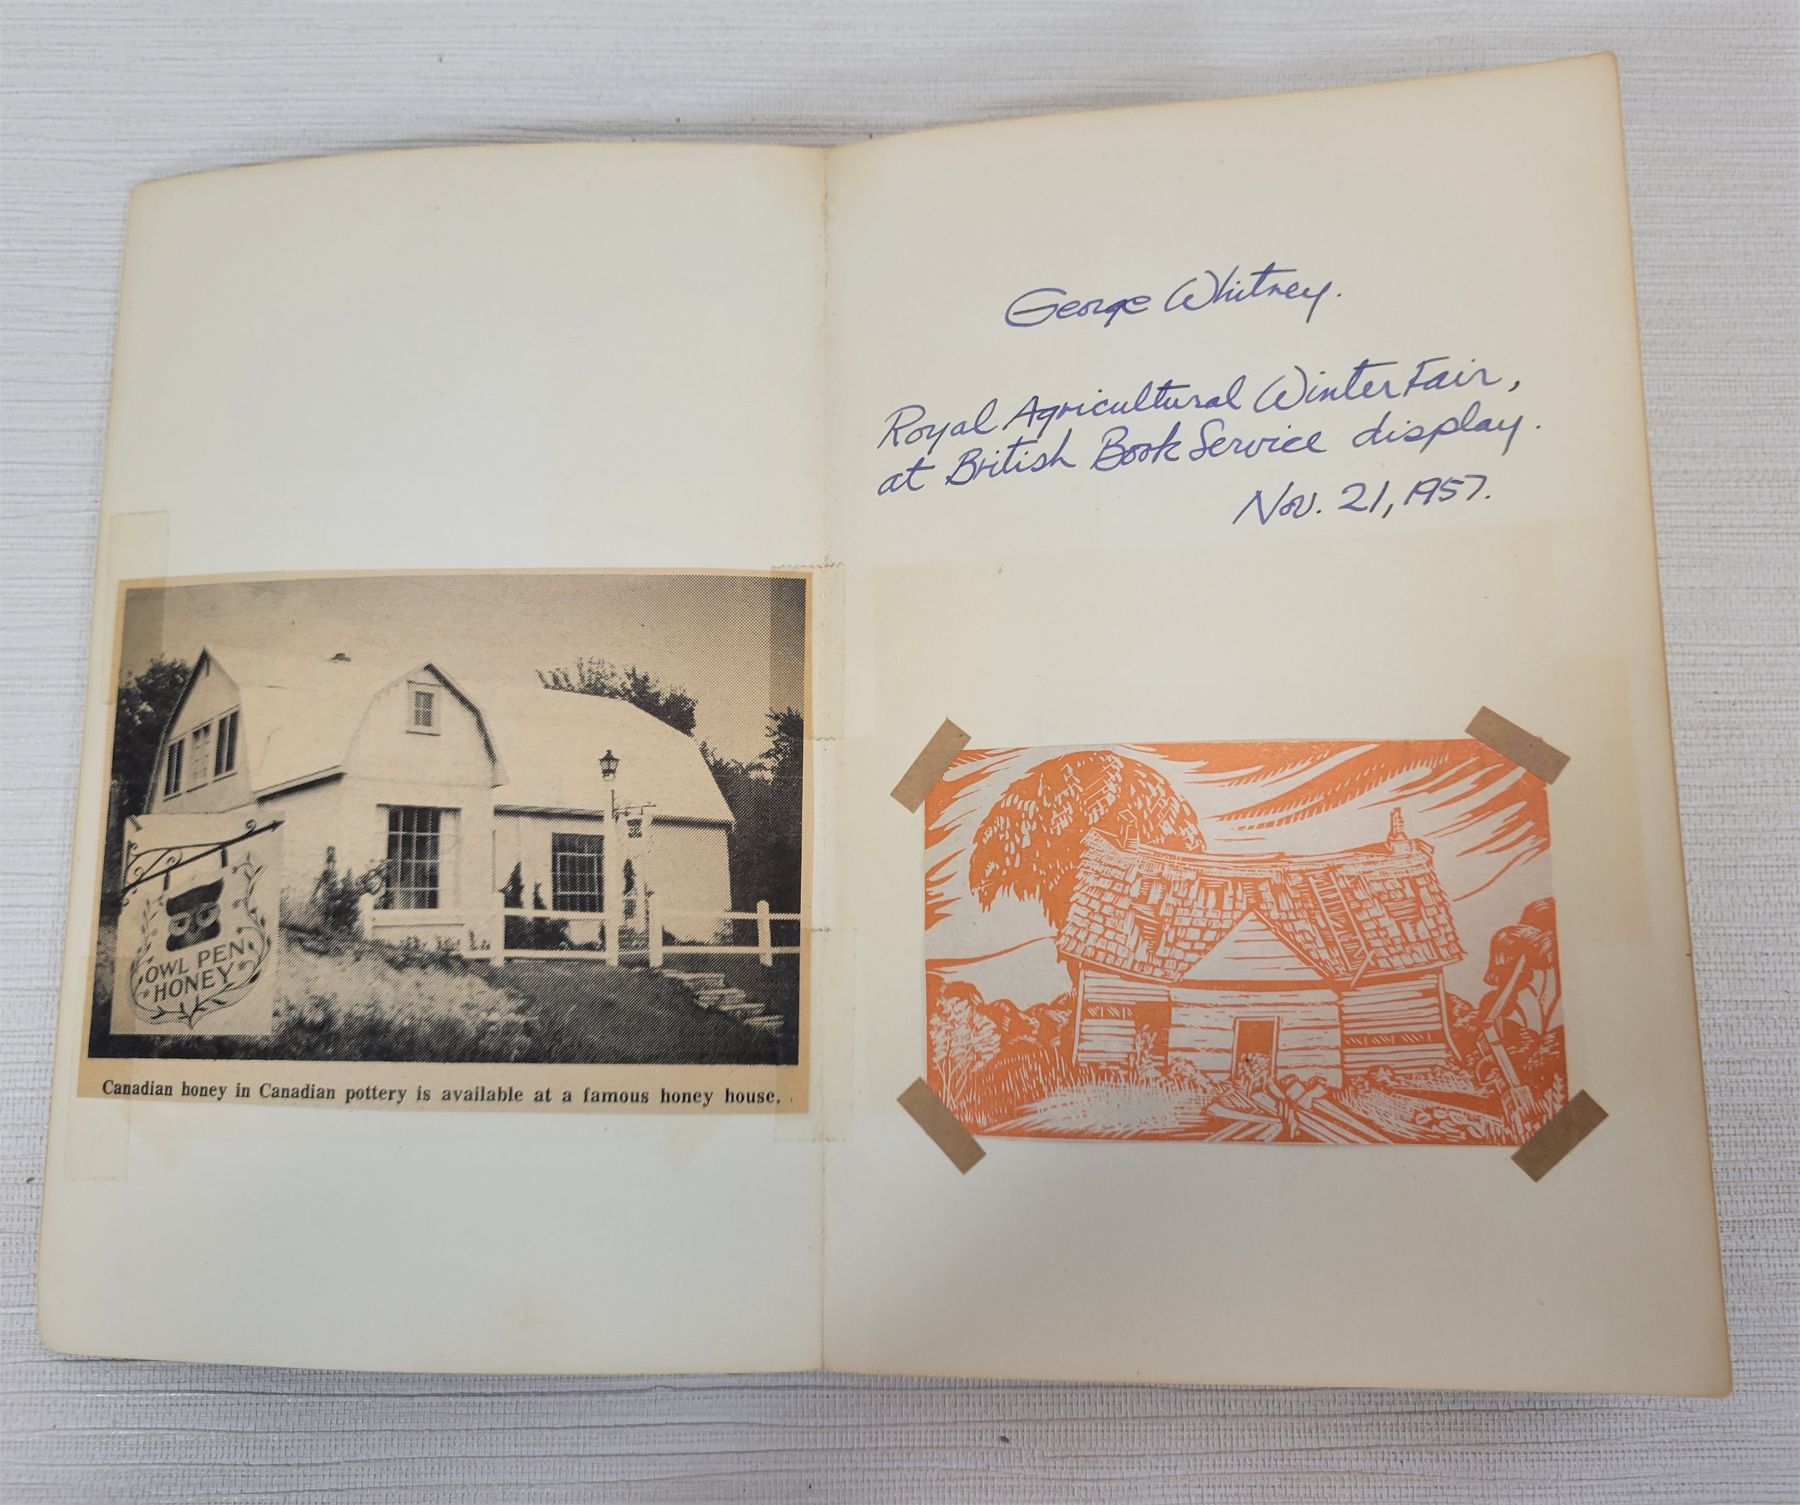 OWL PEN
HONEY
Canadian honey in Canadian pottery is available at a famous honey house.
George Whitney.
Royal Agricultural Winter Fair,
at British Book Service display.
Nov. 21, 1957.